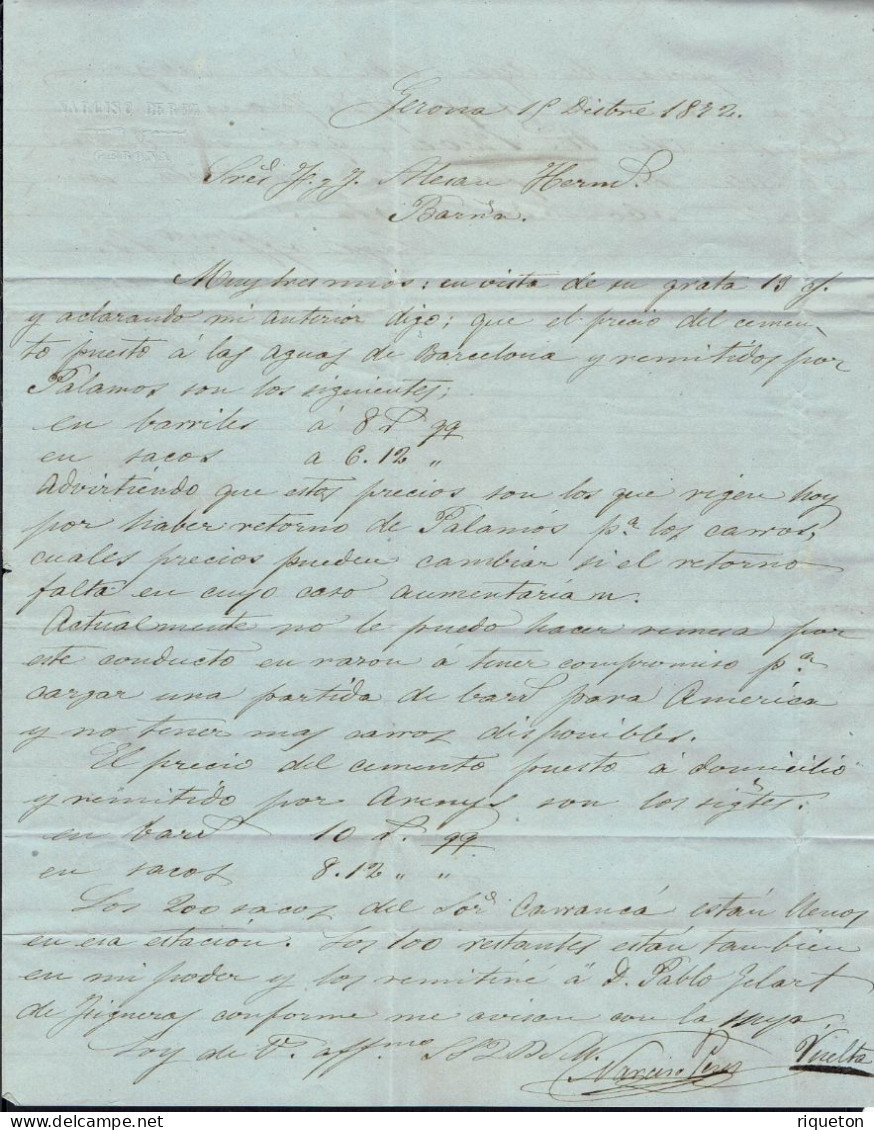 Gerona 15 Dicbre 1872.
Sres J. y J. Herms.
Barna.
Muy sres mios: en vista de su grata 13 y
y aclarando mi anterior digo; que el precio del cemen-
to puesto á las aguas de Barcelona y remitidos por
Palamos son los siguientes;
en barriles á 8 qq
en sacos a 6.12 „
Advirtiendo que estos precios son los que rigen hoy
por haber retorno de Palamós pa los carros,
cuales precios pueden cambiar si el retorno
falta en cuyo caso aumentarian.
Actualmente no le puedo hacer remesa por
este conducto en razon á tener compromiso pa
cargar una partida de bars para America
y no tener mas carros disponibles.
El precio del cemento puesto á domicilio
y remitido por Arenys son los sigtes:
en bars 10 qq
en sacos 8.12 „ „
Los 200 sacos del Sor Carrancá están llenos
en esa estación. Los 100 restantes están tambien
en mi poder y los remitiré á D. Pablo Gelart
de Figueras conforme me avisan con la suya.
Soy de V. affmo SS2BSM.
Narciso Vuelta
riqueton